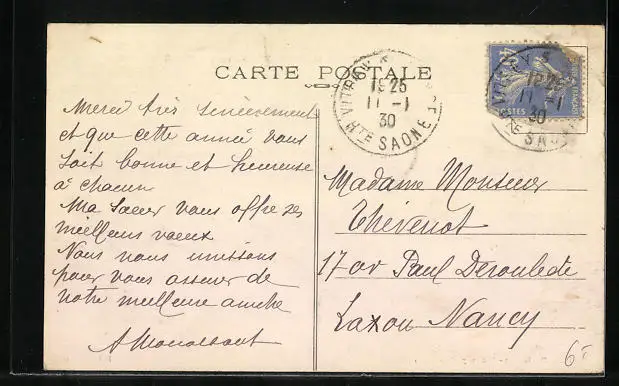 CARTE POSTALE
Merci très sincèrement
et que cette année vous
soit bonne et heureuse
à chacun
Ma Sœur vous offre ses
meilleurs vœux
Nous nous unissons
pour vous assurer de
notre meilleure amitié
VITREY
19 25
11 -1
30
HTE SAONE
VITREY
19 25
11 -1
30
HTE SAONE
POSTES
Madame Monsieur
Thévenot
17 av Paul Deroulede
Laxou Nancy
6-